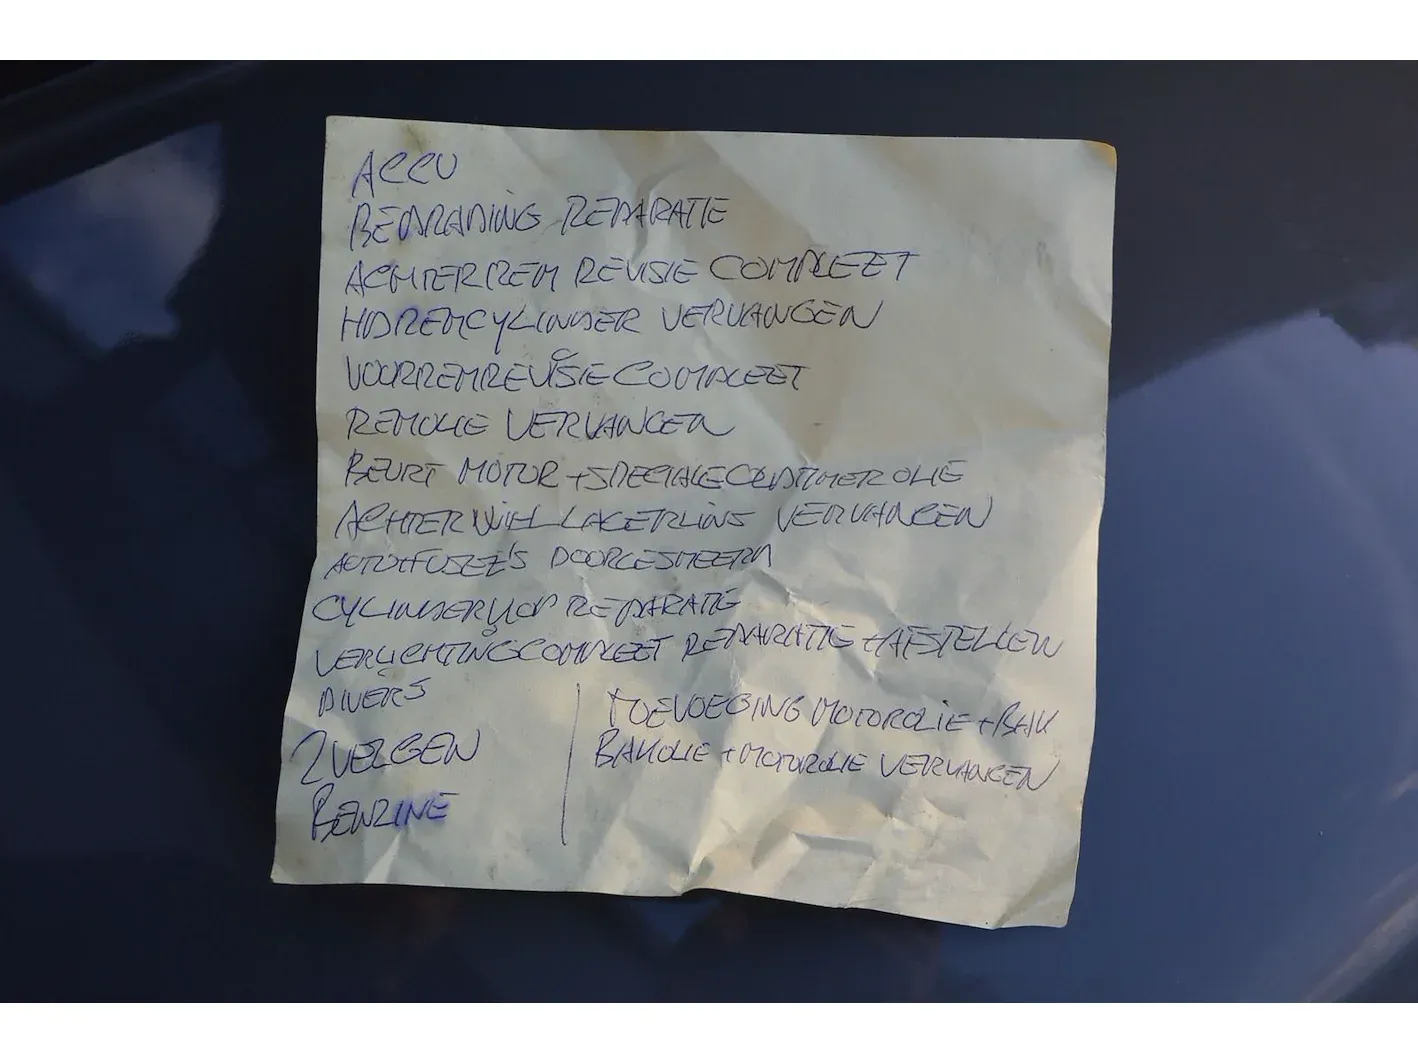 ACCU
BEDRADING REPARATIE
ACHTERREM REVISIE COMPLEET
HDREMCYLINDER VERVANGEN
VOORREMREVISIE COMPLEET
REMOLIE VERVANGEN
BEURT MOTOR + SPECIALE OLDTIMER OLIE
ACHTERWIEL LAGERING VERVANGEN
AUTO + FUSEE'S DOORGESMEERD
CYLINDERKOP REPARATIE
VERLICHTING COMPLEET REPARATIE + AFSTELLEN
DIVERS
2 VELGEN
BENZINE
TOEVOEGING MOTOROLIE + BAK
BAKOLIE + MOTOROLIE VERVANGEN